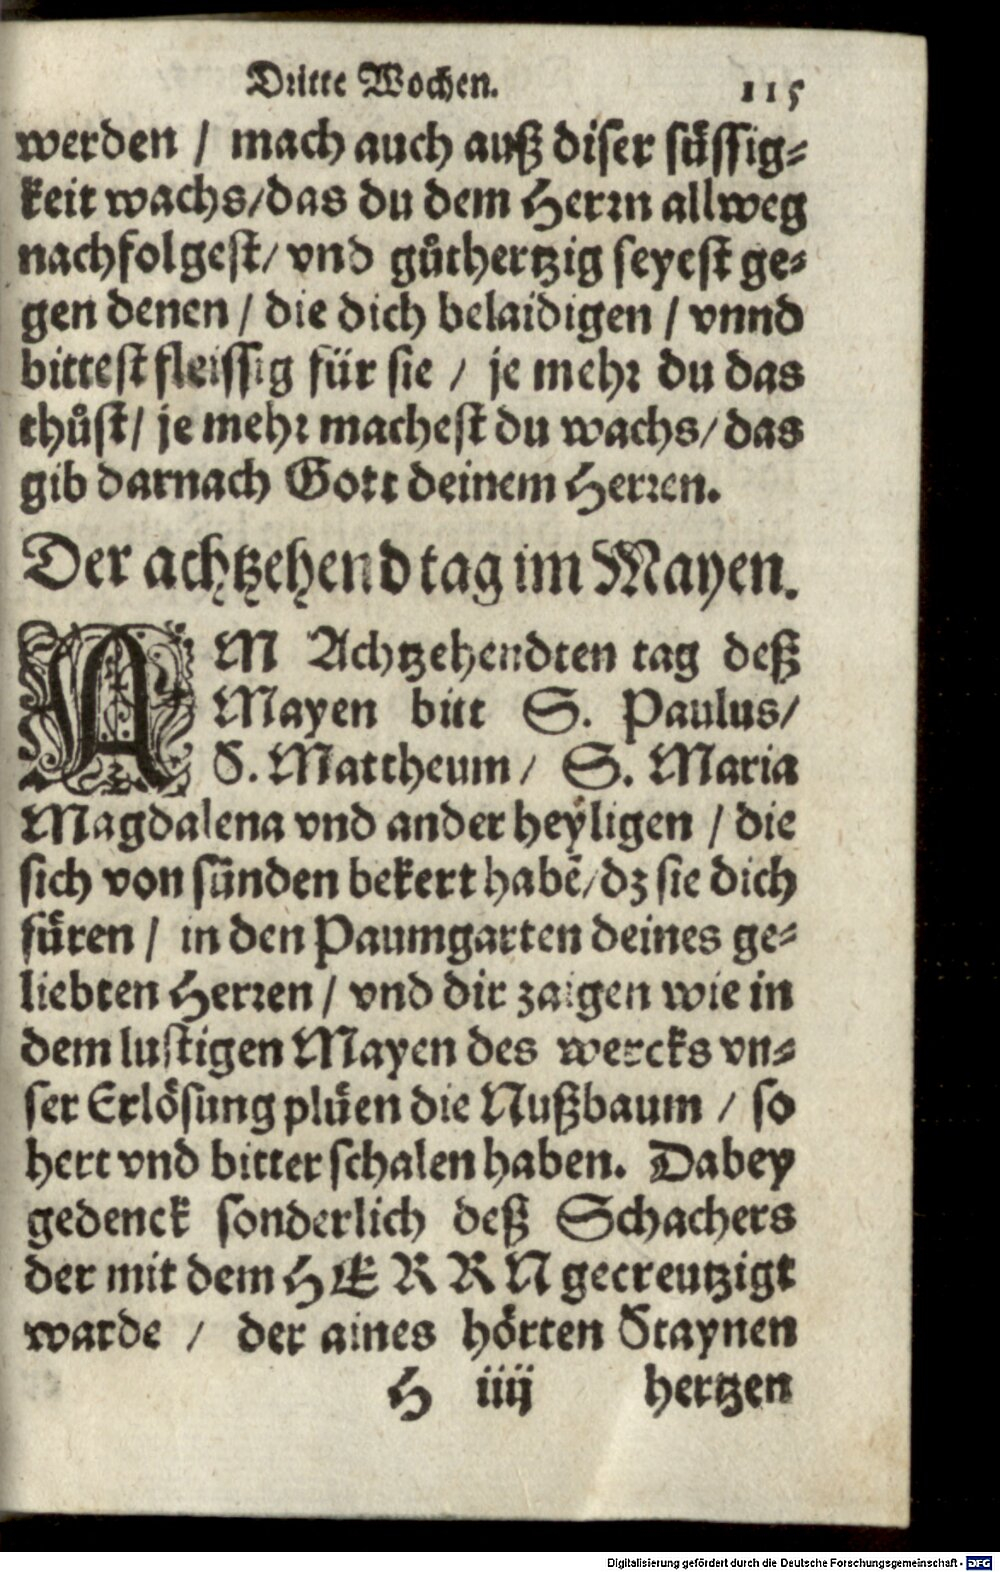 Dritte Wochen. 115
werden / mach auch auß diser süssig-
keit wachs/das du dem Herrn allweg
nachfolgest/ vnd gůthertzig seyest ge-
gen denen / die dich belaidigen / vnnd
bittest fleissig für sie / je mehr du das
thůst/ je mehr machest du wachs/das
gib darnach Gott deinem Herren.
Der achtzehend tag im Mayen.
AM Achtzehendten tag deß
Mayen bitt S. Paulus/
S. Mattheum/ S. Maria
Magdalena vnd ander heyligen / die
sich von sünden bekert habẽ/dz sie dich
füren / in den Paumgarten deines ge-
liebten Herren / vnd dir zaigen wie in
dem lustigen Mayen des wercks vn-
ser Erlösung plüen die Nußbaum / so
hert vnd bitter schalen haben. Dabey
gedenck sonderlich deß Schachers
der mit dem HERRN gecreutzigt
warde / der aines hörten Staynen
H iiij hertzen
Digitalisierung gefördert durch die Deutsche Forschungsgemeinschaft - DFG